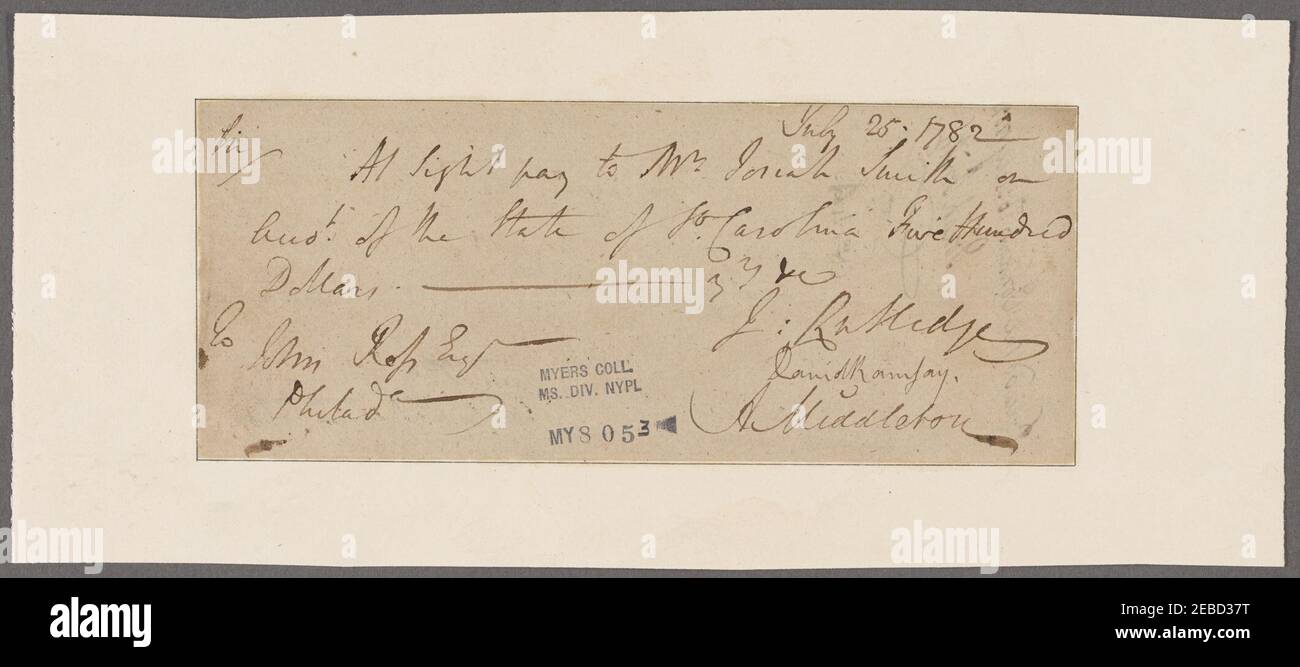 July 25. 1782
Sir
At Sight pay to Mr. Josiah Smith on
Acco.t of the State of So. Carolina Five Hundred
Dollars
To
John Ross Esqr
Philada
J: Rutledge
David Ramsay.
A Middleton
MYERS COLL.
MS. DIV. NYPL
MY 8 0 5 3
alamy
alamy
Image ID: 2EBD37T
www.alamy.com